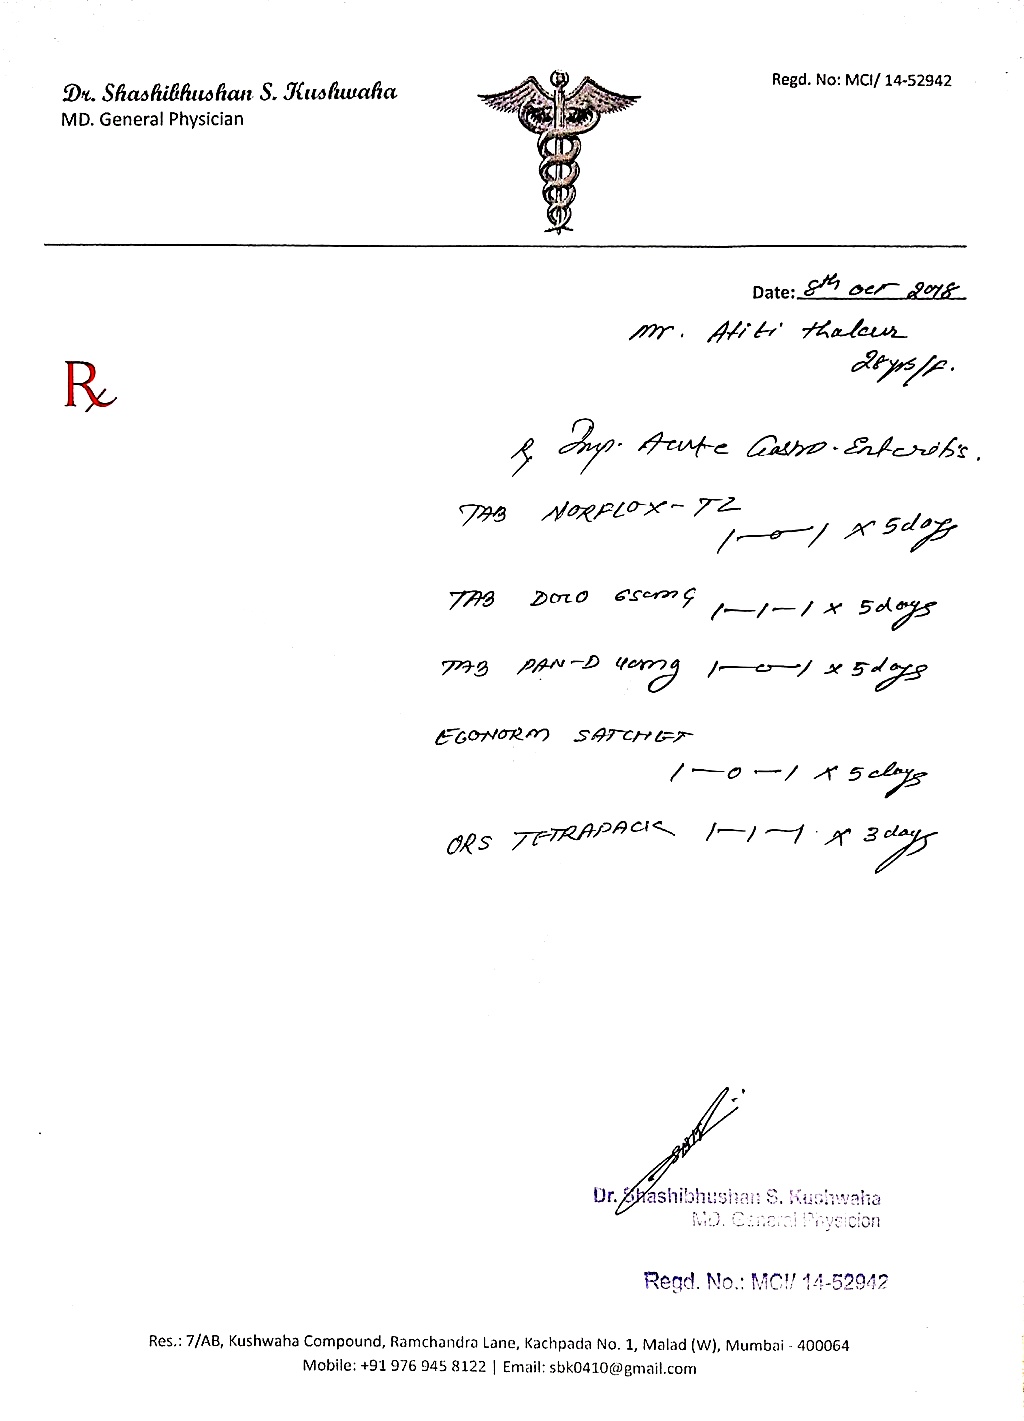 Dr. Shashibhushan S. Kushwaha
MD. General Physician
Regd. No: MCI/ 14-52942
Date: 8th Oct 2018
Mr. Atiti Thakur
28yrs/F.
Rx
Imp. Acute Gastro-Enteritis.
TAB NORFLOX-TZ
1—0—1 x 5 days
TAB DOLO 650mg 1—1—1 x 5 days
TAB PAN-D 40mg 1—0—1 x 5 days
ECONORM SATCHET
1—0—1 x 5 days
ORS TETRAPACK 1—1—1 x 3 days
Dr. Shashibhushan S. Kushwaha
MD. General Physician
Regd. No.: MCI/ 14-52942
Res.: 7/AB, Kushwaha Compound, Ramchandra Lane, Kachpada No. 1, Malad (W), Mumbai - 400064
Mobile: +91 976 945 8122 | Email: sbk0410@gmail.com